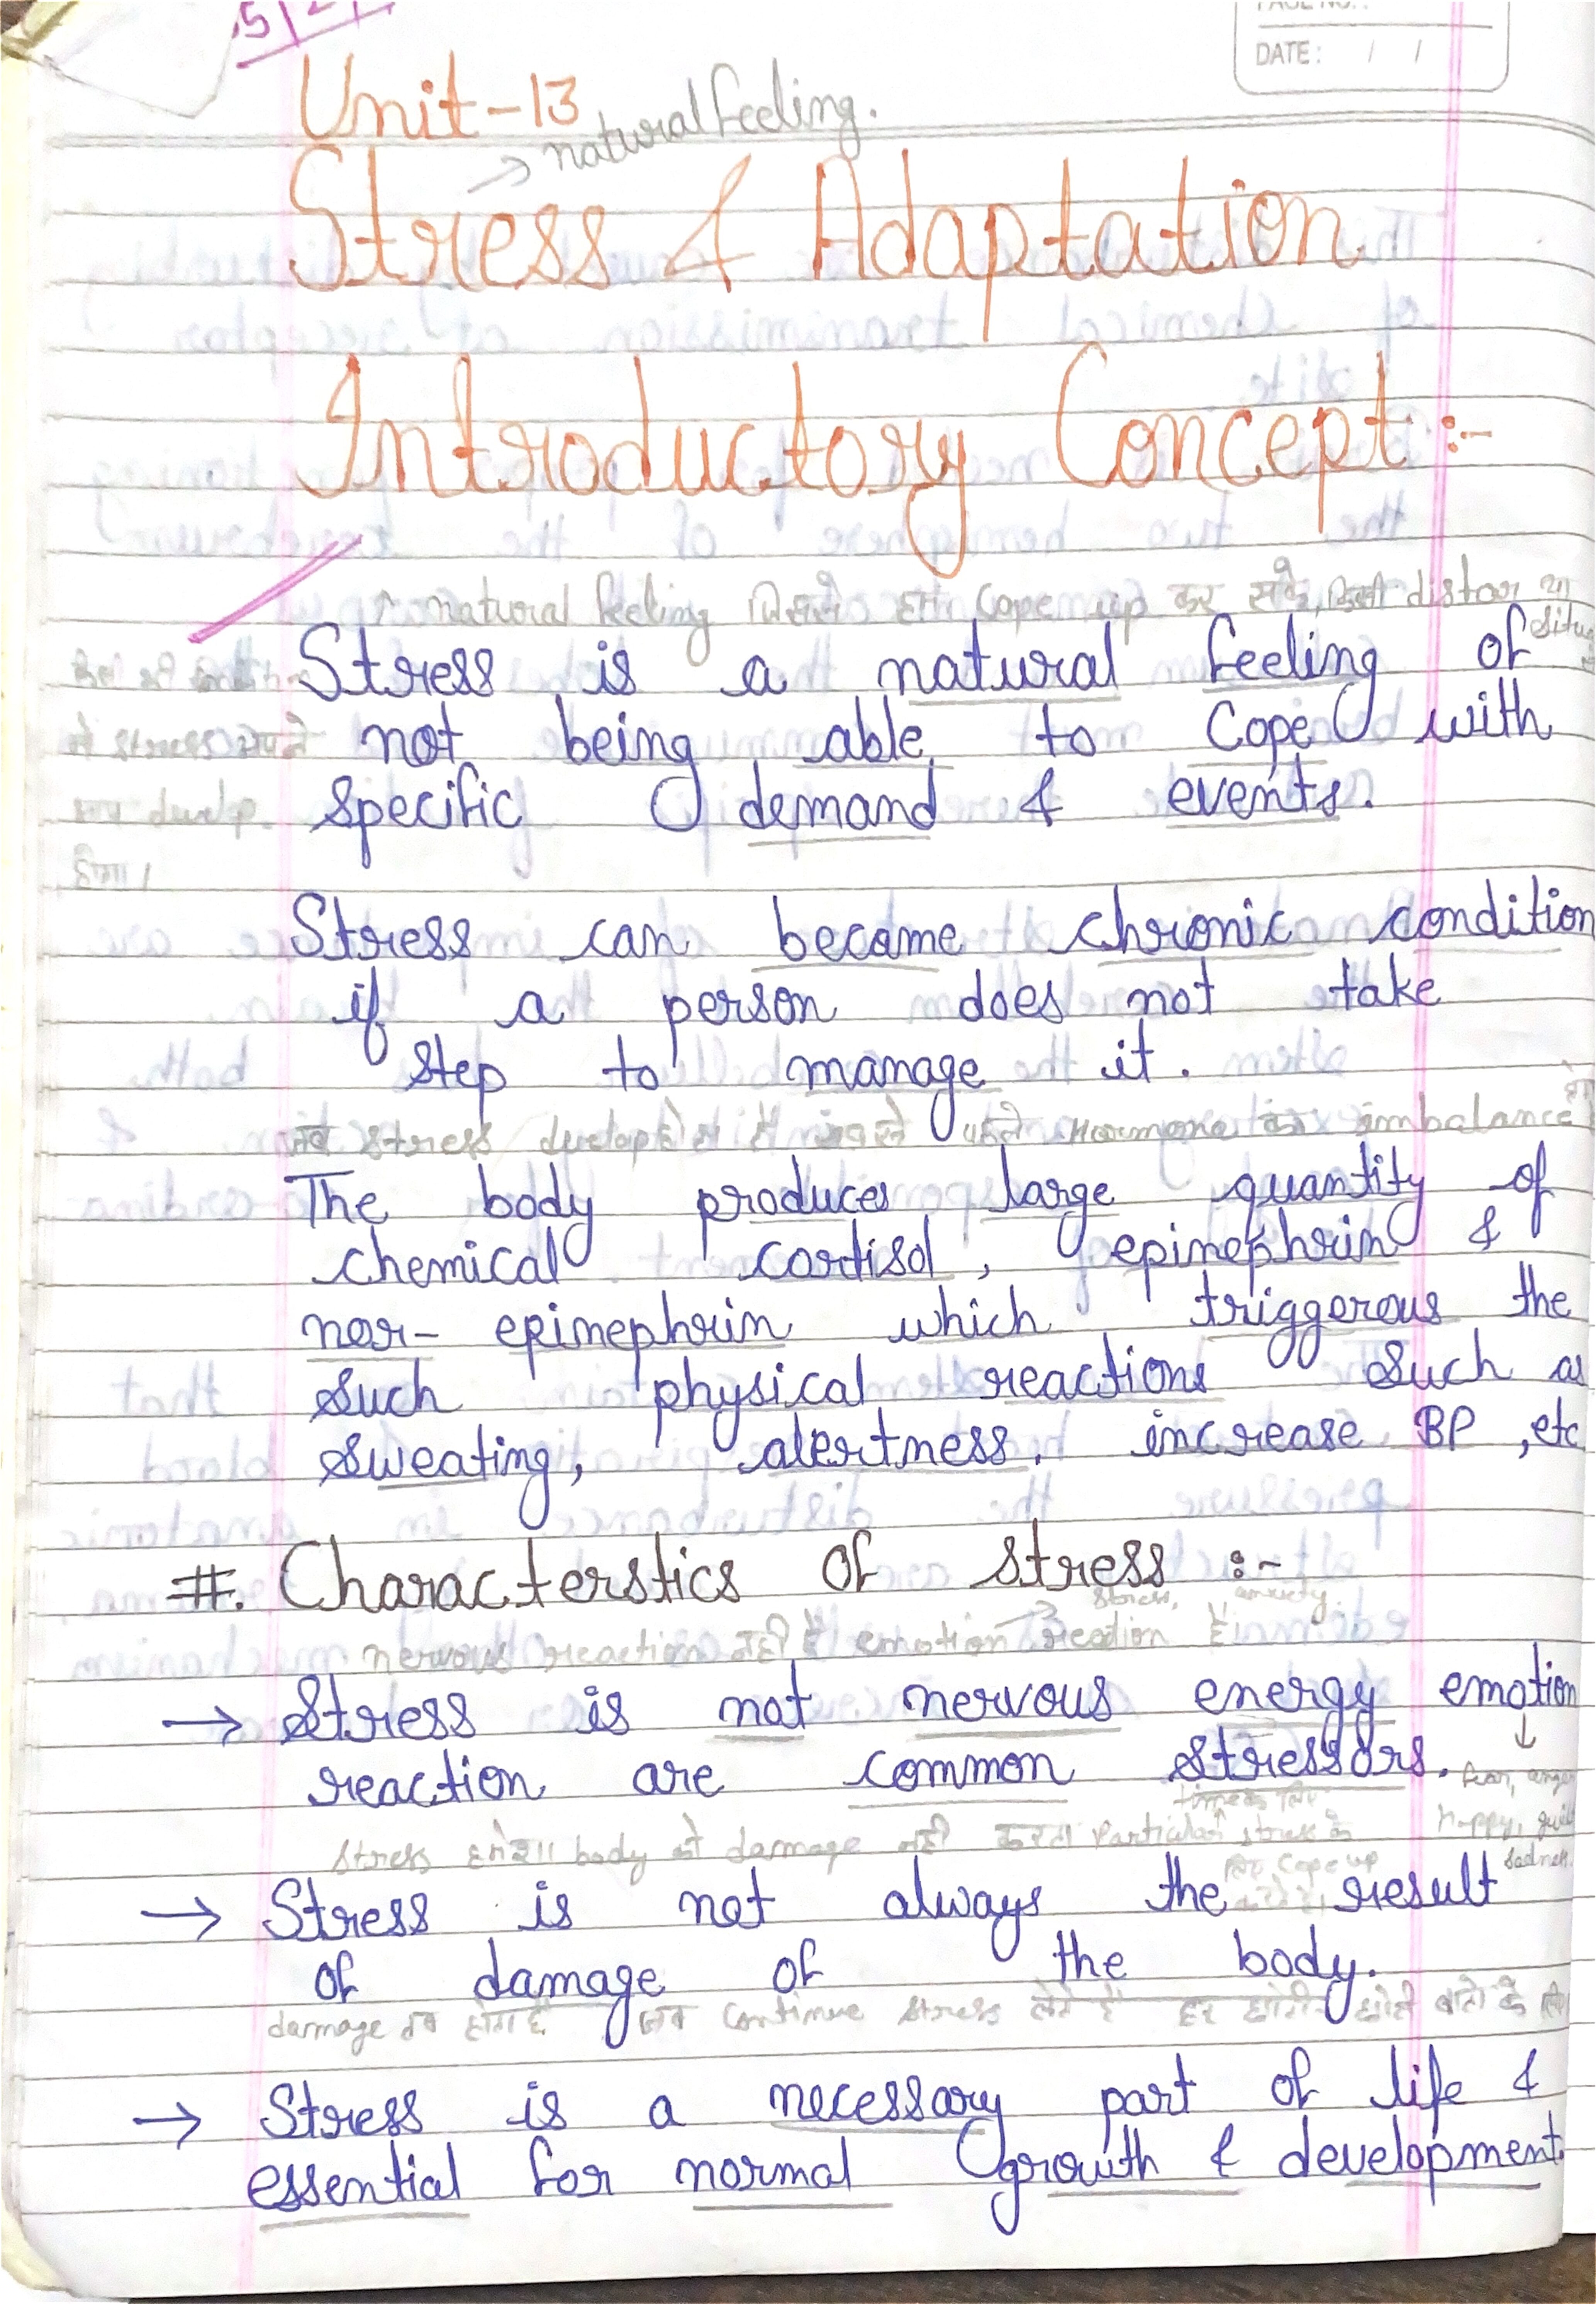 DATE: / /
Unit-13
→ natural feeling.
Stress & Adaptation
Introductory Concept :-
natural feeling जिससे हम cope up कर सके,
Stress is a natural feeling of
not being able to Cope with
specific demand & events.
Stress can become chronic condition
if a person does not take
step to manage it.
जब stress hormone का imbalance
The body produces large quantity of
chemical cortisol, epinephrin &
nor- epinephrin which triggerous the
such physical reactions such as
sweating, alertness, increase BP, etc
#. Characterstics of stress :-
stress, anxiety.
nervous reaction नही है emotion reaction है
→ Stress is not nervous energy emotion
reaction are common stressors.
↓
fear, anger
happy, guilt
sadness.
stress हमेशा body को damage नही करता particular stress के
लिए cope up
→ Stress is not always the result
of damage of the body.
damage तब होता है जब continue stress लेते है हर छोटी-छोटी बातो के
→ Stress is a necessary part of life &
essential for normal growth & development.